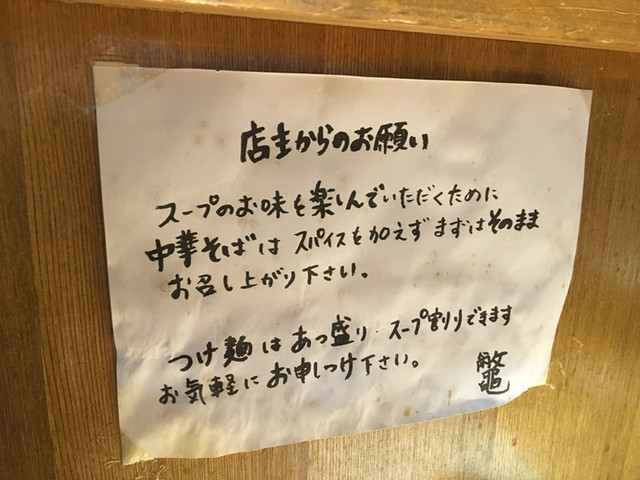 店主からのお願い
スープのお味を楽しんでいただくために
中華そばは スパイスを加えず まずはそのまま
お召し上がり下さい。
つけ麺はあつ盛り・スープ割りできます
お気軽にお申しつけ下さい。